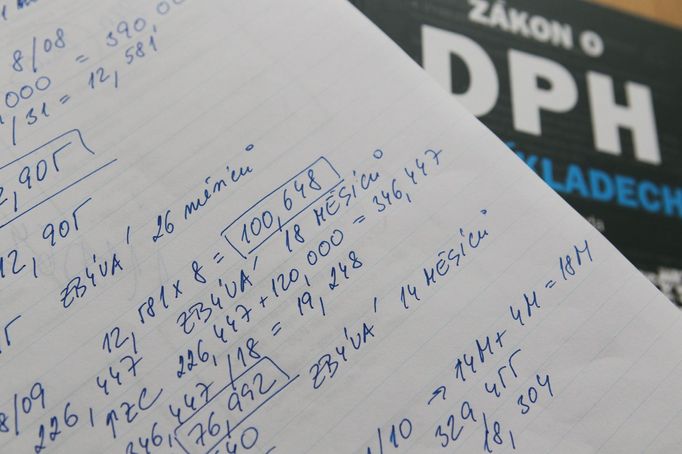 8/08
000 = 390,00
/31 = 12,581
2,905
12,905
ZBÝVÁ 26 měsíců
12,581 x 8 = 100,648
ZBÝVÁ 18 MĚSÍCŮ
8/09
226,447
PZC 226,447 + 120,000 = 346,447
346,447 / 18 = 19,248
76,992
ZBÝVÁ 14 MĚSÍCŮ
/10 → 14M + 4M = 18M
329 455
18,304
ZÁKON O
DPH
KLADECH